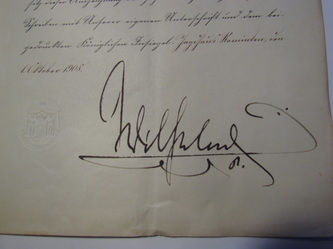 Schreiben mit Unserer eigenen Unterschrift und dem bei-
gedruckten Königlichen Insiegel. Jagdhaus Rominten, den
6. Oktober 1905.
Wilhelm
R.